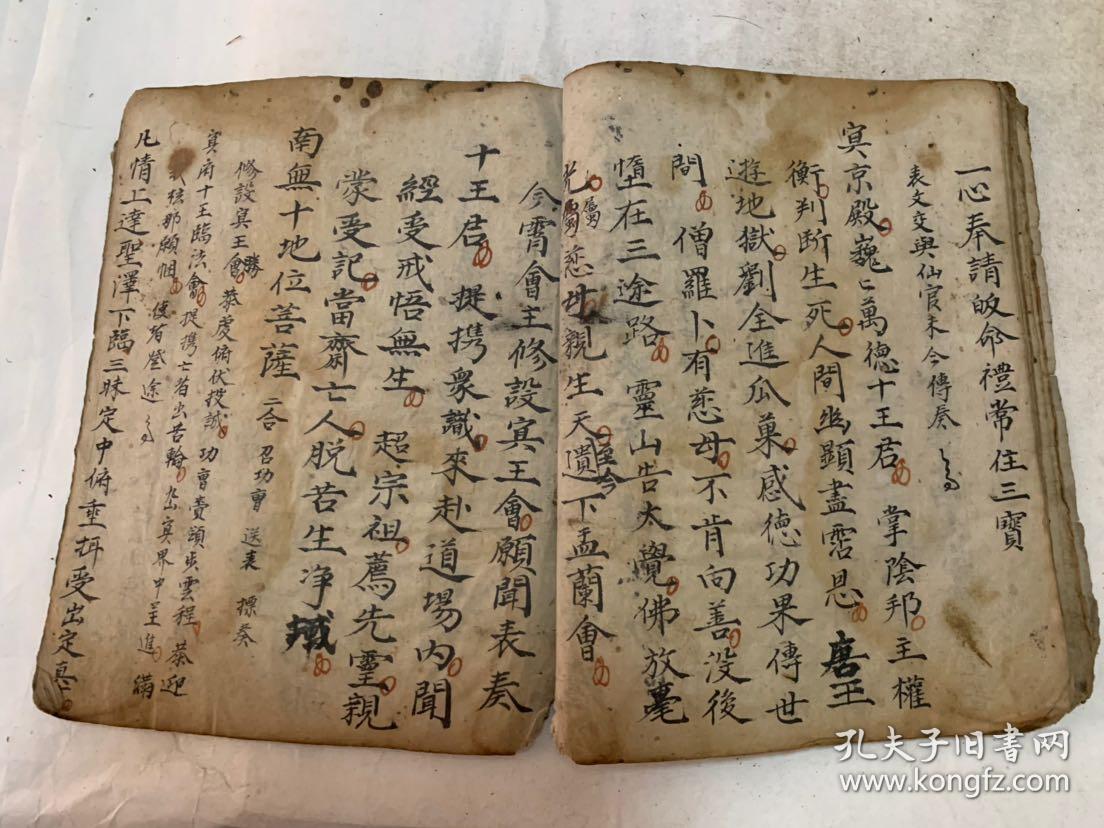 一心奉請皈命禮常住三寶
表文文與仙官未今傳奏
冥京殿巍〻萬德十王君 掌陰邦主權
衡判斷生死人間幽顯盡霑恩 唐王
遊地獄劉全進瓜菓感德功果傳世
間 僧羅卜有慈母不肯向善沒後
墮在三途路 靈山告太覺佛放毫
光屬慈母親生天至今遺下盂蘭會
今霄會主修設冥王會願聞表奏
十王君 提携衆識來赴道場內聞
經受戒悟無生 超宗祖薦先靈親
蒙受記當齋亡人脱苦生净域
南無十地位菩薩 二合 召功曹 送表 摽奏
修設冥王勝會恭虔俯伏投誠 功曹賫領步雲程 恭迎
冥府十王臨法會提携亡者出苦輪 冥界中呈進
凡情上達聖澤下臨三昧定中俯垂攝受出定真
孔夫子旧书网
www.kongfz.com